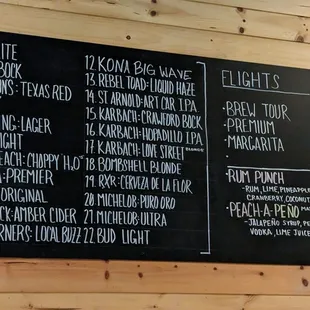 ITE
BOCK
NS: TEXAS RED
NG: LAGER
IGHT
EACH: CHOPPY H₂O
A: PREMIER
ORIGINAL
CK: AMBER CIDER
RNERS: LOCAL BUZZ
12 KONA BIG WAVE
13 REBEL TOAD: LIQUID HAZE
14 ST ARNOLD: ART CAR IPA
15 KARBACH: CRAWFORD BOCK
16 KARBACH: HOPADILLO IPA
17 KARBACH: LOVE STREET
18 BOMBSHELL BLONDE
19 RXR: CERVEZA DE LA FLOR
20 MICHELOB: PURO ORO
21 MICHELOB: ULTRA
22 BUD LIGHT
FLIGHTS
· BREW TOUR
· PREMIUM
· MARGARITA
RUM PUNCH
- RUM, LIME, PINEAPPLE
CRANBERRY, COCONUT
PEACH-A-PEÑO
- JALAPEÑO SYRUP, PE
VODKA, LIME JUICE